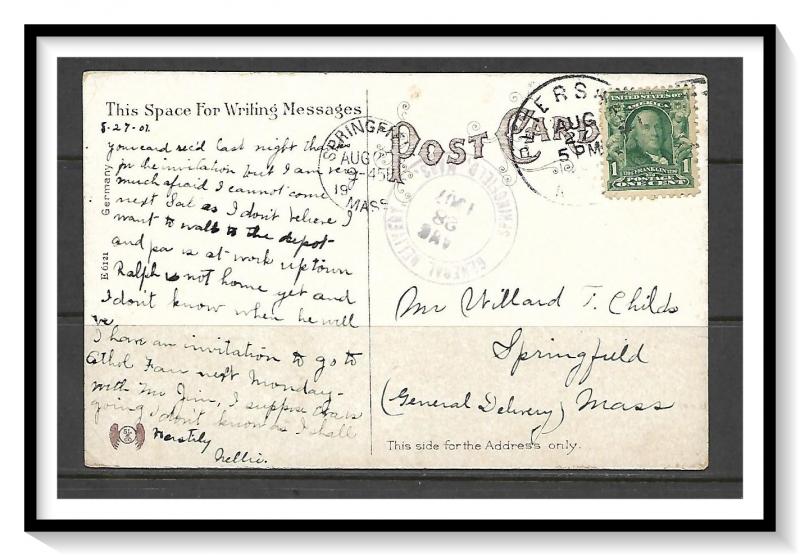 This Space For Writing Messages
8-27-07
your card rec'd last night thanks
for the invitation but I am very
much afraid I cannot come
next Sat as I don't believe I
want to walk to the depot
and pa is at work uptown
Ralph is not home yet and
I don't know when he will
be
I have an invitation to go to
Athol Fair next Monday-
with Mr Jim, I suppose
going I don't know as I shall
Hastily
Nellie.
Germany
E 6121
POST CARD
SPRINGFIELD
AUG
9-45
19
MASS
SPRINGFIELD, MASS.
GENERAL DELIVERY
AUG
28
1907
AUG
27
5 PM
UNITED STATES OF
AMERICA
FRANKLIN
POSTAGE
1 ONE CENT 1
Mr Willard T. Childs
Springfield
(General Delivery) Mass
This side for the Address only.